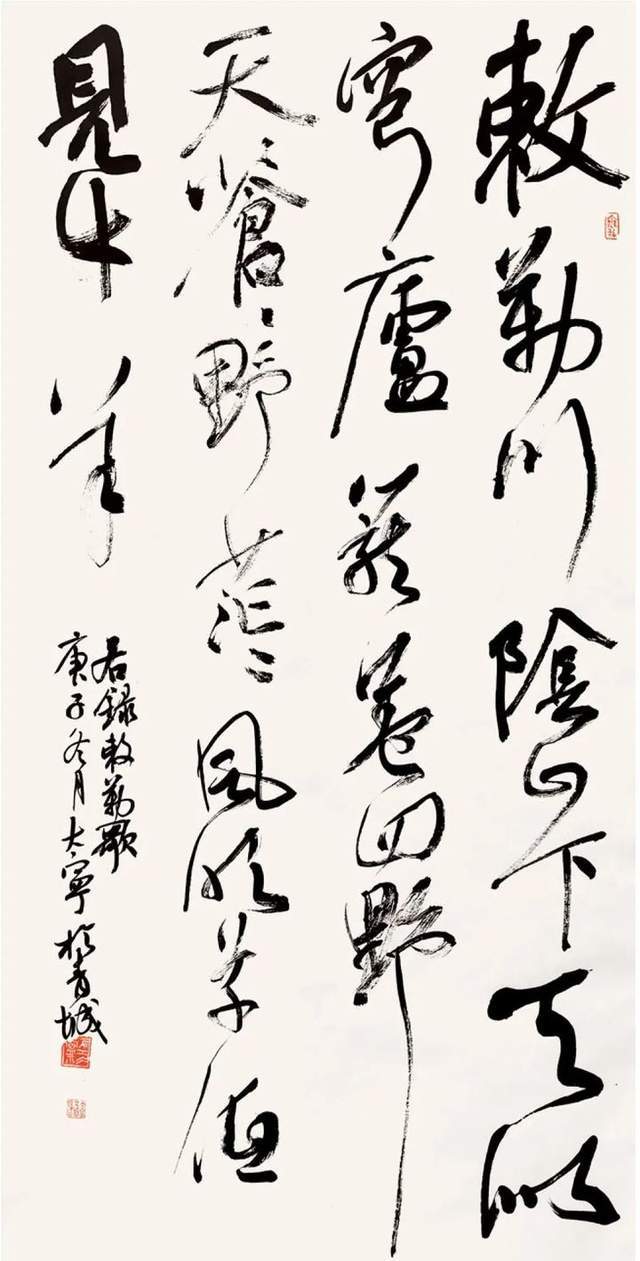 敕勒川陰山下天似
穹廬籠蓋四野
天蒼々野茫々風吹草低
見牛羊
右錄敕勒歌
庚子冬月大寧於青城